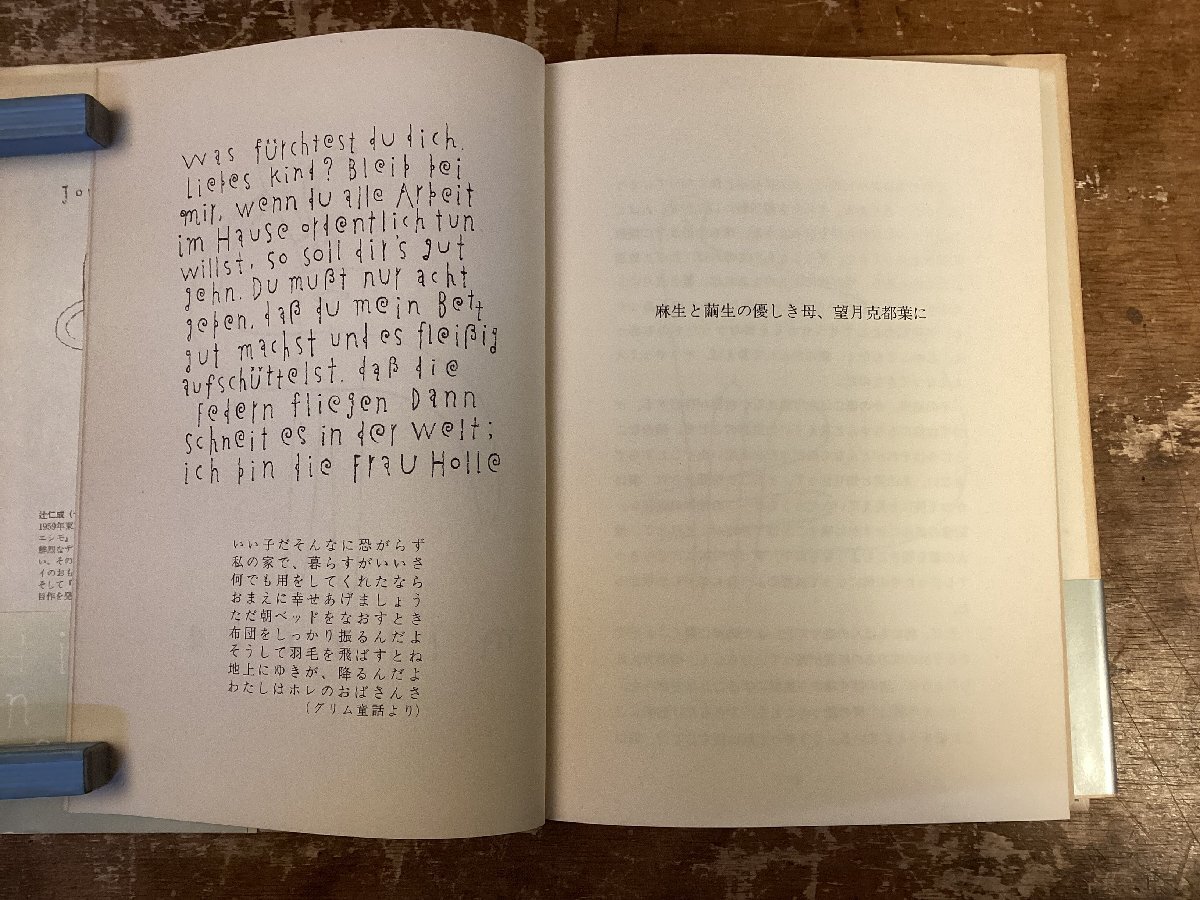 Was fürchtest du dich,
liebes Kind? Bleib bei
mir, wenn du alle Arbeit
im Hause ordentlich tun
willst, so soll dir's gut
gehn. Du mußt nur acht
geben, daß du mein Bett
gut machst und es fleißig
aufschüttelst, daß die
Federn fliegen Dann
schneit es in der Welt;
ich bin die Frau Holle
いい子だそんなに恐がらず
私の家で、暮らすがいいさ
何でも用をしてくれたなら
おまえに幸せあげましょう
ただ朝ベッドをなおすとき
布団をしっかり振るんだよ
そうして羽毛を飛ばすとね
地上にゆきが、降るんだよ
わたしはホレのおばさんさ
（グリム童話より）
麻生と繭生の優しき母、望月克都葉に
辻仁成
1959年東
エシモ』
鮮烈なデ
い、その
イのおも
そして『
目作を発